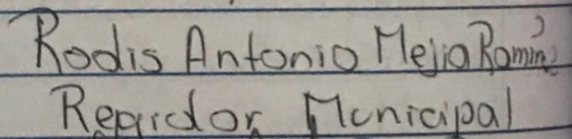 Rodis Antonio Mejia Ramin
Regidor Municipal